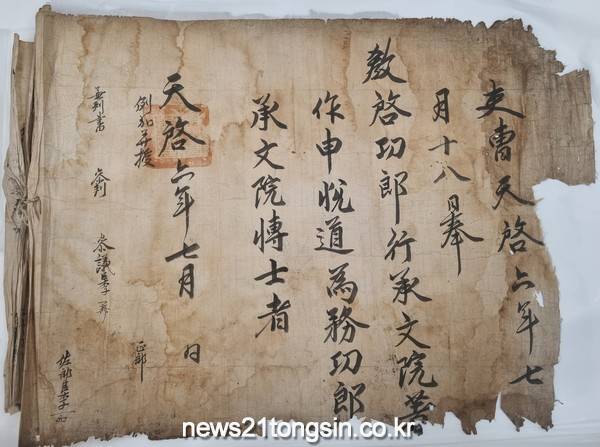 吏曹天啓六年七
月十八日奉
敎啓功郎行承文院著
作申悅道爲務功郎
承文院博士者
天啓六年七月 日
例加并授
兼判書 參判 參議臣李
正郎
佐郎臣李
news21tongsin.co.kr